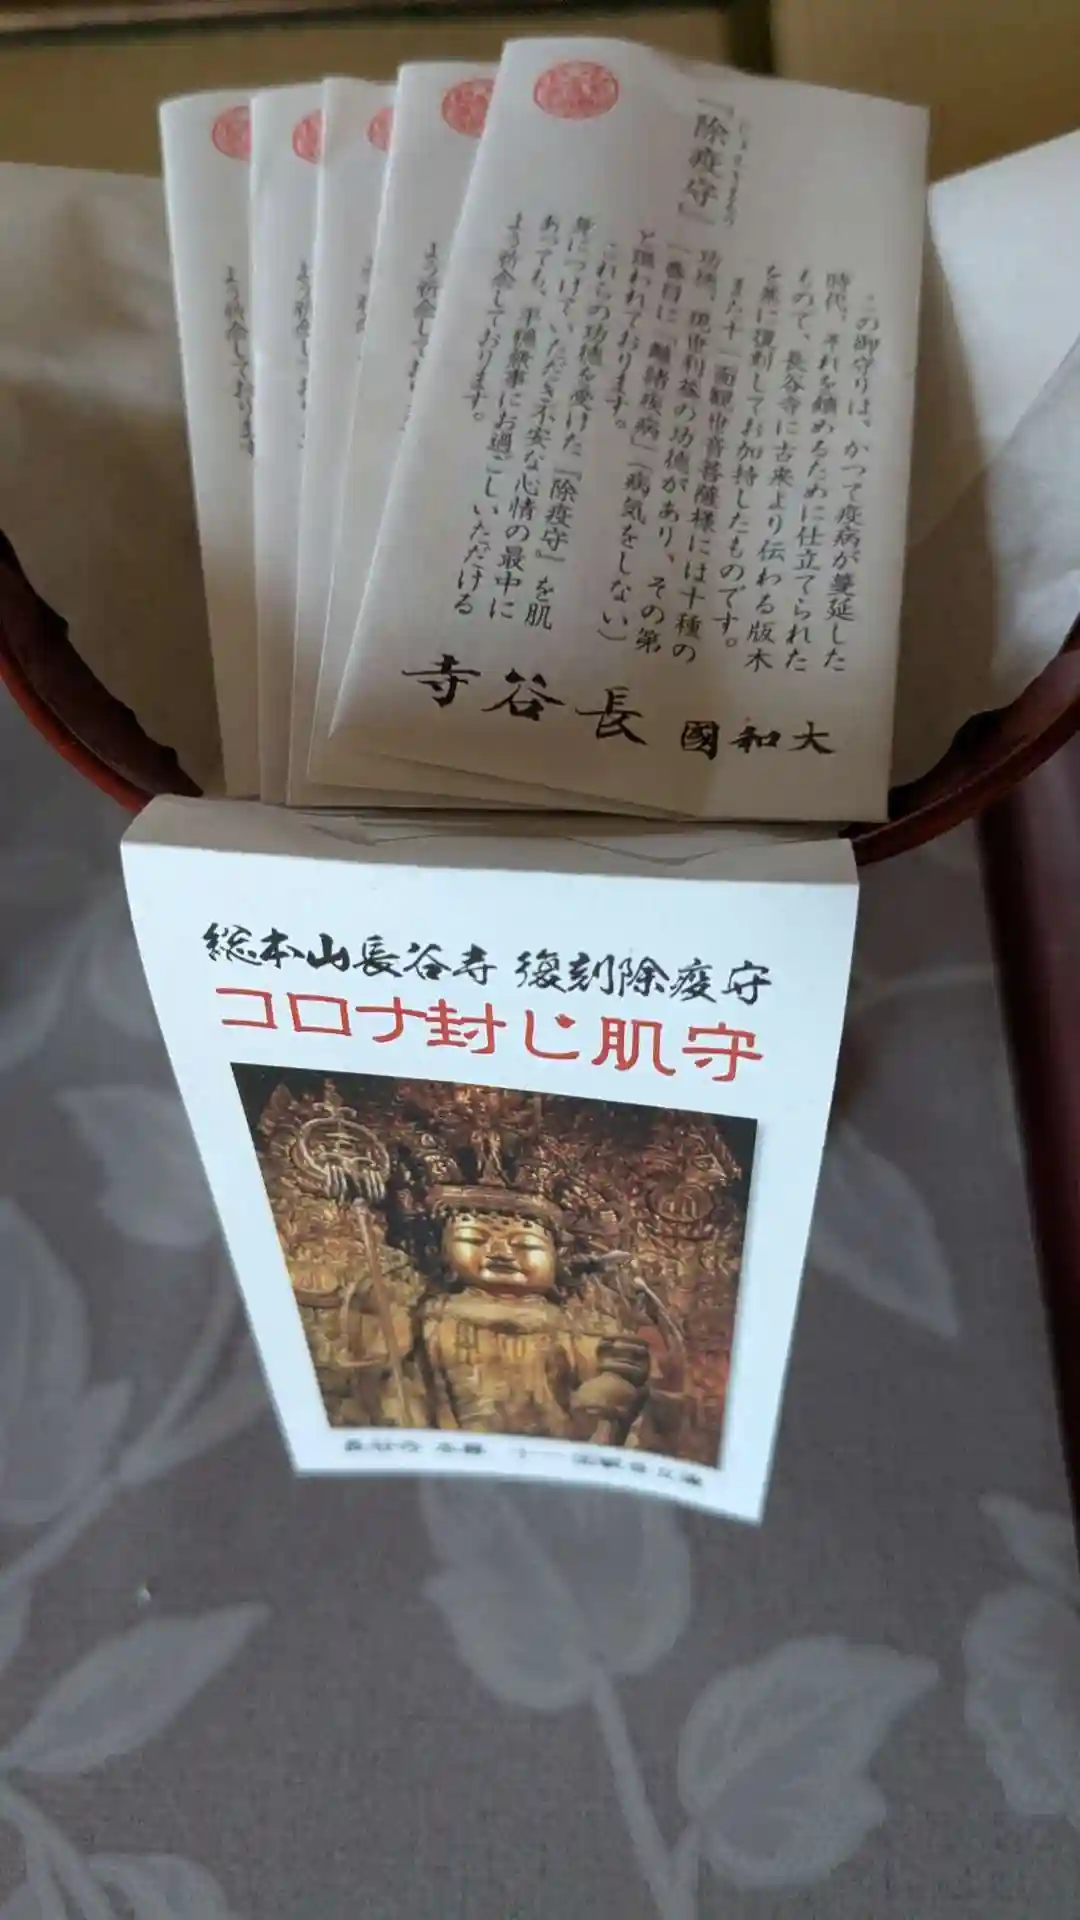 『除疫守』
じょえきまもり
この御守りは、かつて疫病が蔓延した
時代、それを鎮めるために仕立てられた
もので、長谷寺に古来より伝わる版木
を基に復刻してお加持したものです。
また十一面観世音菩薩様には十種の
功徳、現世利益の功徳があり、その第
一番目に「離諸疾病」（病気をしない）
と謳われております。
これらの功徳を受けた『除疫守』を肌
身につけていただき不安な心情の最中に
あっても、平穏無事にお過ごしいただける
よう祈念しております。
大和國 長谷寺
よう祈念してお
よう祈念しておりま
総本山長谷寺 復刻除疫守
コロナ封じ肌守